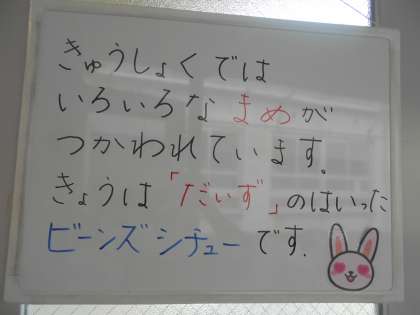 きゅうしょくでは
いろいろな まめが
つかわれています。
きょうは「だいず」のはいった
ビーンズシチューです.